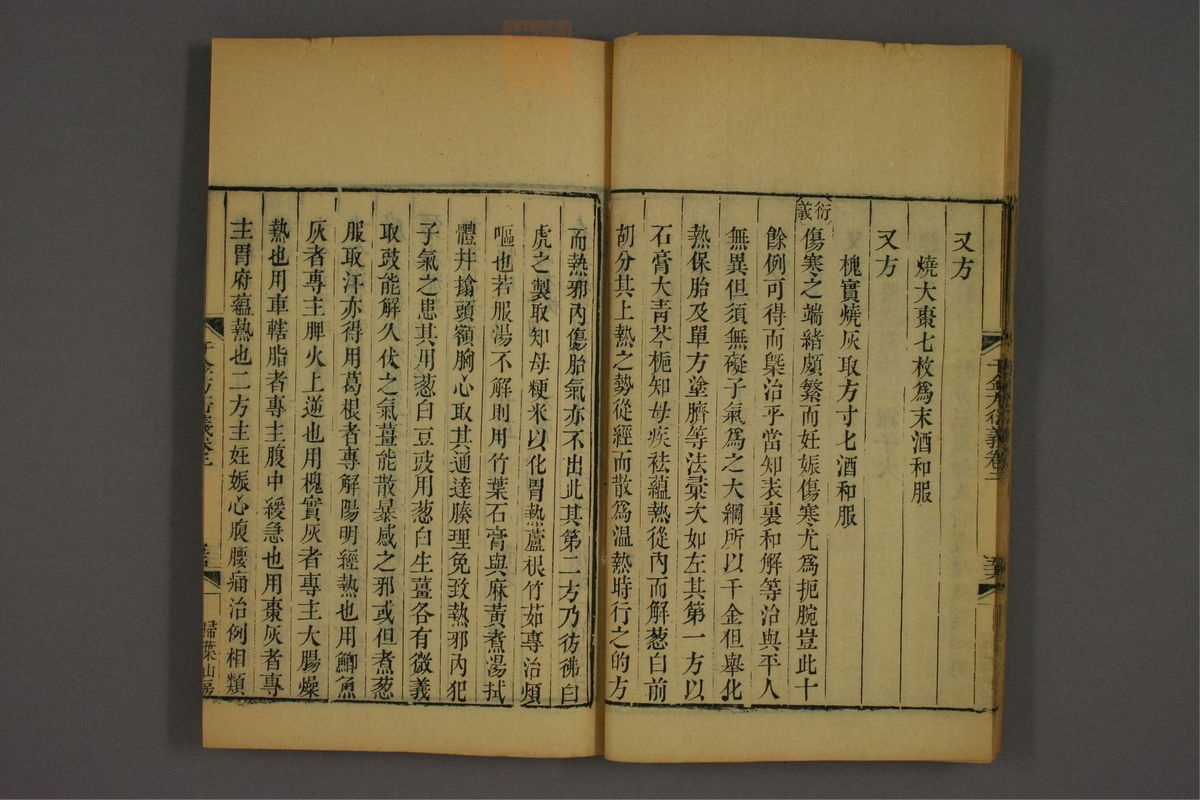 又方
燒大棗七枚爲末酒和服
又方
槐實燒灰取方寸匕酒和服
衍義
傷寒之端緒頗繁而妊娠傷寒尤爲扼腕豈此十
餘例可得而槩治乎當知表裏和解等治與平人
無異但須無礙子氣爲之大綱所以千金但舉化
熱保胎及單方塗臍等法彙次如左其第一方以
石膏大青芩梔知母疾袪蘊熱從內而解葱白前
胡分其上熱之勢從經而散爲溫熱時行之的方
千金方衍義卷二
而熱邪內傷胎氣亦不出此其第二方乃彷彿白
虎之製取知母粳米以化胃熱蘆根竹茹專治煩
嘔也若服湯不解則用竹葉石膏與麻黃煮湯拭
體幷搶頭額胸心取其通達腠理免致熱邪內犯
子氣之患其用葱白豆豉用葱白生薑各有微義
取豉能解久伏之氣薑能散暴感之邪或但煮葱
服取汗亦得用葛根者專解陽明經熱也用鯽魚
灰者專主脾火上逆也用槐實灰者專主大腸燥
熱也用車轄脂者專主腹中緩急也用棗灰者專
主胃府蘊熱也二方主妊娠心腹腰痛治例相類
掃葉山房